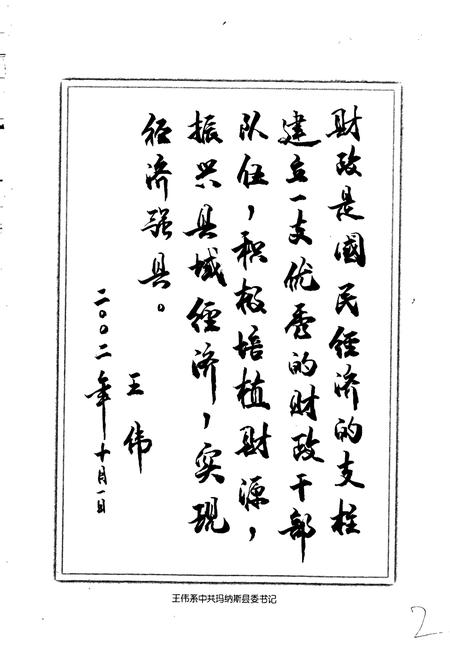 財政是國民经济的支柱
建立一支优秀的财政干部
队伍，积极培植財源，
振兴县域经济，实现
经济强县。
王伟
二〇〇二年十月一日
王伟系中共玛纳斯县委书记
2